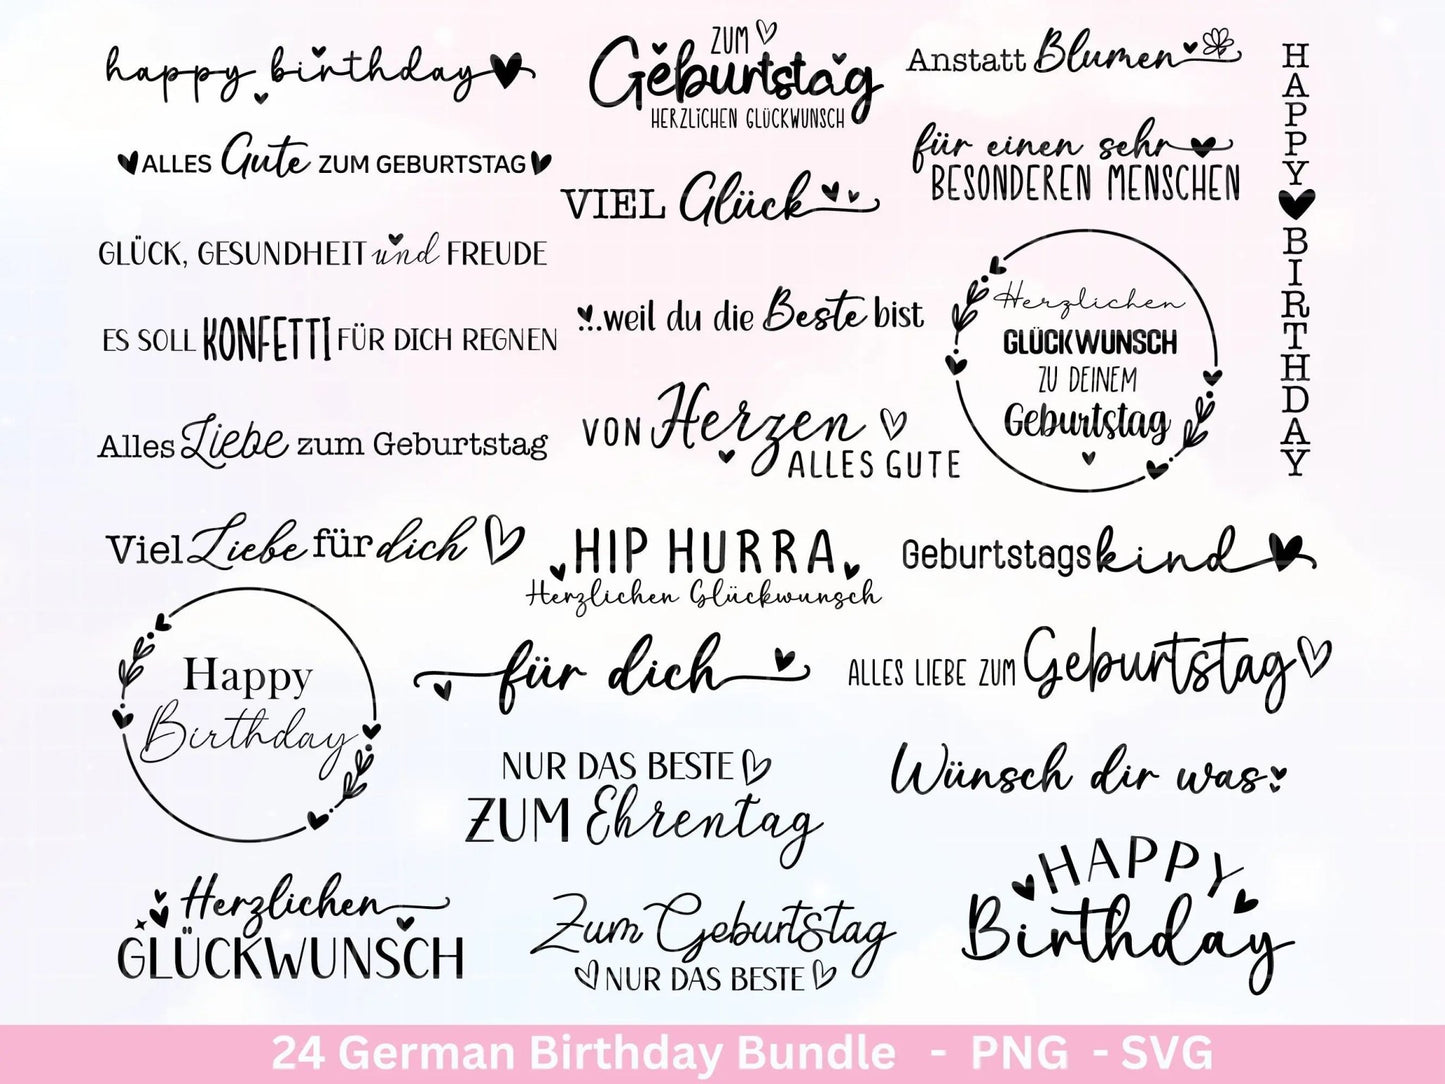 happy birthday
ALLES Gute ZUM GEBURTSTAG
GLÜCK, GESUNDHEIT und FREUDE
ES SOLL KONFETTI FÜR DICH REGNEN
Alles Liebe zum Geburtstag
Viel Liebe für dich
Happy
Birthday
Herzlichen
GLÜCKWUNSCH
ZUM
Geburtstag
HERZLICHEN GLÜCKWUNSCH
VIEL Glück
...weil du die Beste bist
VON Herzen
ALLES GUTE
HIP HURRA
Herzlichen Glückwunsch
für dich
NUR DAS BESTE
ZUM Ehrentag
Zum Geburtstag
NUR DAS BESTE
Anstatt Blumen
für einen sehr
BESONDEREN MENSCHEN
Herzlichen
GLÜCKWUNSCH
ZU DEINEM
Geburtstag
HAPPY BIRTHDAY
Geburtstagskind
ALLES LIEBE ZUM Geburtstag
Wünsch dir was
HAPPY
Birthday
24 German Birthday Bundle - PNG - SVG